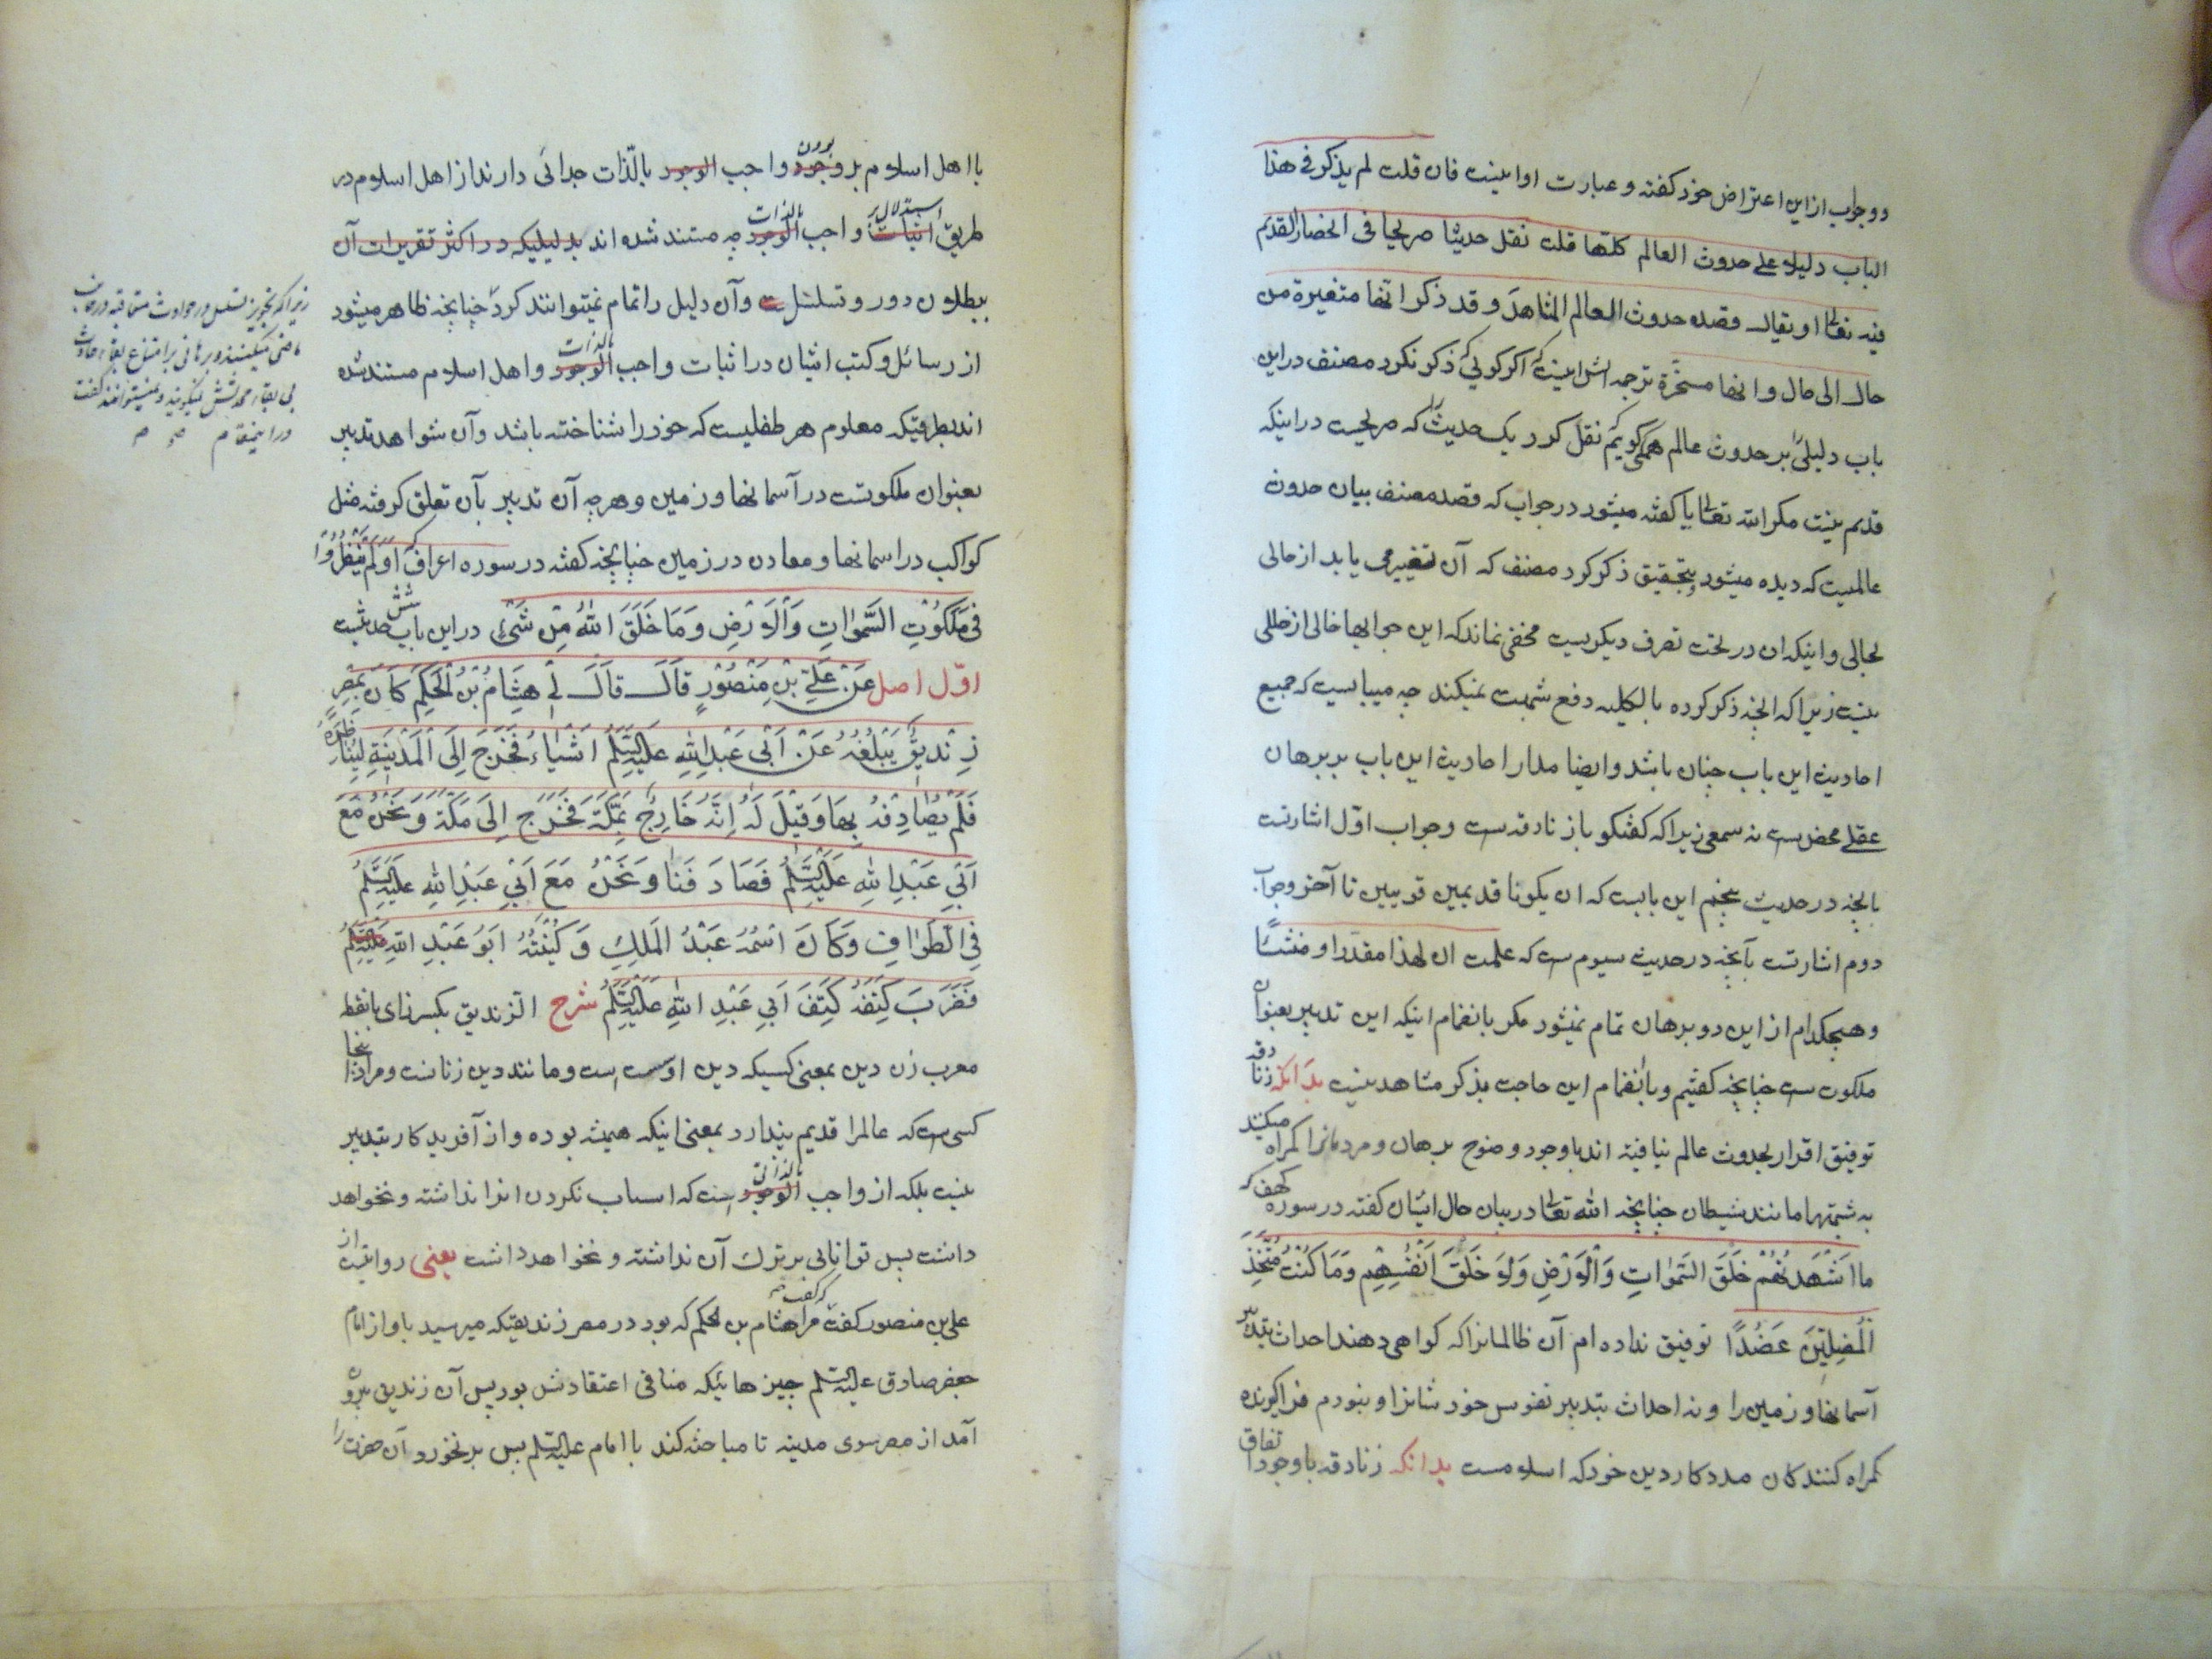 و جواب از این اعتراض خود گفته و عبارت او اینست فان قلت لم یذکر فی هذا
الباب دلیلا علی حدوث العالم کلها قلت نقل حدیثا صریحا فی انحصار القدیم
فیه تعالی او یقال قصده حدوث العالم المشاهد و قد ذکر انها متغیرة من
حال الی حال و انها مسخّرة ترجمه اش اینست که اگر گویی که ذکر نکرد مصنف در این
باب دلیلی را بر حدوث عالم همگی گوییم نقل کرد یک حدیث را که صریحست در اینکه
قدیم نیست مگر الله تعالی یا گفته میشود در جواب که قصد مصنف بیان حدوث
عالمیست که دیده میشود و بتحقیق ذکر کرد مصنف که آن تغییر می یابد از حالی
بحالی و اینکه ان در تحت تصرف دیگریست مخفی نماند که این جوابها خالی از خللی
نیست زیرا که انچه ذکر کرده بالکلیه دفع شبهت نمیکند چه میبایست که جمیع
احادیث این باب چنان باشد و ایضا مدار احادیث این باب بر برهان
عقلی محض ست نه سمعی زیرا که گفتگو با زنادقه ست و جواب اوّل اشارتست
بانچه در حدیث پنجم این بابست که ان یکونا قدیمین قویین تا آخر و جواب
دوم اشارتست بآنچه در حدیث سیوم ست که علمت ان لهذا مقدّرا و منشئًا
و هیچکدام از این دو برهان تمام نمیشود مگر بانضمام اینکه این تدبیر بعنوان
ملکوت ست چنانچه گفتیم و بانضمام این حاجت بذکر مشاهد نیست بدانکه زنادقه
توفیق اقرار بحدوث عالم نیافته اند با وجود وضوح برهان و مردمانرا گمراه میکنند
به شبهتها مانند شیطان چنانچه الله تعالی در بیان حال ایشان گفته در سوره کهف که
ما اَشْهَدْتُهُمْ خَلْقَ السَّمٰوَاتِ وَالْاَرْضِ وَلَا خَلْقَ اَنْفُسِهِمْ وَمَا كُنْتُ مُتَّخِذَ
الْمُضِلّينَ عَضُدًا توفیق نداده ام آن ظالمانرا که گواهی دهند احداث بتدبیر
آسمانها و زمین را و نه احداث بتدبیر نفوس خود شانرا و نبودم فراگیرنده
گمراه کنندگان مددکار دین خود که اسلامست بدانکه زنادقه با وجود اتفاق
با اهل اسلام بر وجود بودن واجب الوجود بالذّات جدائی دارند از اهل اسلام در
طریق اثبات استدلال بر واجب الوجود بالذات چه مستند شده اند بدلیلیکه در اکثر تقریرات آن
ببطلان دور و تسلسل ست وآن دلیل را تمام نمیتوانند کرد چنانچه ظاهر میشود
از رسائل و کتب ایشان در اثبات واجب الوجود بالذات و اهل اسلام مستند شده
اند بطریقیکه معلوم هر طفلیست که خود را شناخته باشد و آن شواهد تدبیر
بعنوان ملکوتست در آسمانها و زمین و هر چه آن تدبیر بآن تعلق گرفته مثل
کواکب در اسمانها و معادن در زمین چنانچه گفته در سوره اعراف که اَوَلَمْ یَنْظُرُوا
فِی مَلَكُوْتِ السَّمٰوَاتِ وَالْاَرْضِ وَمَا خَلَقَ اللهُ مِنْ شَیْءٍ در این باب شش حدیثست
اوّل اصل عَنْ عَلِیّ بْنِ مَنْصُوْرٍ قَالَ قَالَ لِی هِشَامُ بْنُ الْحَكَمِ كَانَ بِمِصْرَ
زِنْدِیقٌ یَبْلُغُهُ عَنْ اَبِی عَبْدِ اللهِ عَلَیْهِ السَّلَمُ اَشْیَاءُ فَخَرَجَ اِلَی الْمَدِینَةِ لِیُنَاظِرَهُ
فَلَمْ یُصَادِفْهُ بِهَا وَقِیْلَ لَهُ اِنَّهُ خَارِجٌ بِمَكَّةَ فَخَرَجَ اِلَی مَكَّةَ وَنَحْنُ مَعَ
اَبِی عَبْدِ اللهِ عَلَیْهِ السَّلَمُ فَصَادَفَنَا وَنَحْنُ مَعَ اَبِی عَبْدِ اللهِ عَلَیْهِ السَّلَمُ
فِی الطَّوَافِ وَكَانَ اسْمُهُ عَبْدُ الْمَلِكِ وَكُنْیَتُهُ اَبُو عَبْدِ اللهِ عَلَیْهِ السَّلَمُ
فَضَرَبَ كَتِفَهُ كَتِفَ اَبِی عَبْدِ اللهِ عَلَیْهِ السَّلَمُ شرح الزندیق بکسر زای بانقط
معرب زن دین بمعنی کسیکه دین او سست ست و مانند دین زنانست و مراد اینجا
کسی ست که عالم را قدیم پندارد بمعنی اینکه همیشه بوده و از آفریدگار بتدبیر
نیست بلکه از واجب الوجود بالذاتی ست که اسباب نکردن انرا نداشته و نخواهد
داشت پس توانایی بر ترک آن نداشته و نخواهد داشت یعنی روایتست از
علی بن منصور که گفت گفت مرا هشام بن الحکم که بود در مصر زندیقیکه میرسید باو از امام
جعفر صادق علیه السلم چیزهائیکه منافی اعتقادش بود پس آن زندیق بیرون
آمد از مصر سوی مدینه تا مباحثه کند با امام علیه السلم پس برنخورد آن حضرت را
زیرا که تجویز تسلسل در حوادث متعاقبه در جانب
ماضی میکنند و برهانی بر امتناع بقاء حادث
بی بقاء محدثش نمیگویند و نمیتوانند گفت
در این مقام